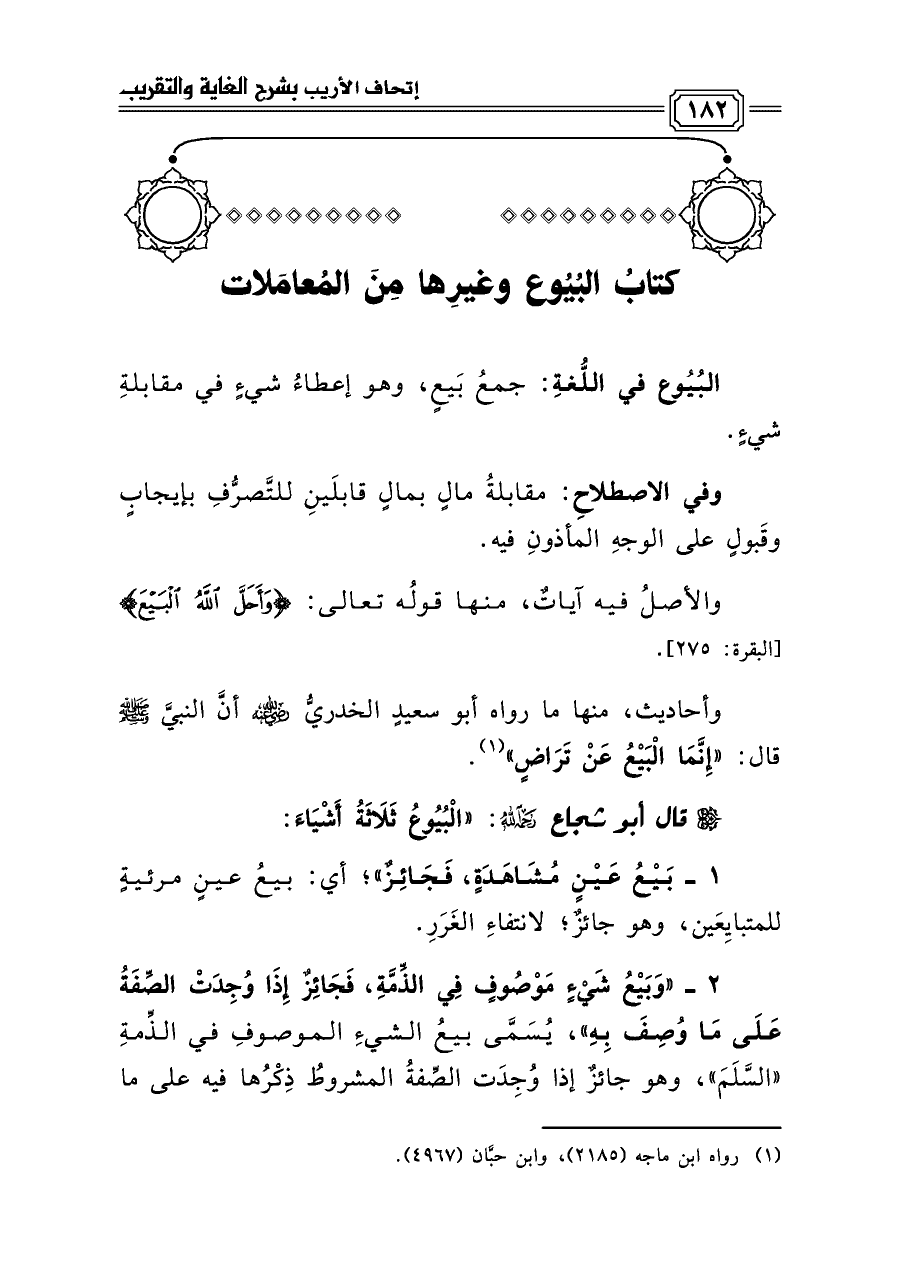 إتحاف الأريب بشرح الغاية والتقريب
١٨٢
كتابُ البُيُوع وغيرِها مِنَ المُعامَلات
البُيُوع في اللُّغةِ: جمعُ بَيعٍ، وهو إعطاءُ شيءٍ في مقابلةِ
شيءٍ.
وفي الاصطلاحِ: مقابلةُ مالٍ بمالٍ قابلَينِ للتَّصرُّفِ بإيجابٍ
وقَبولٍ على الوجهِ المأذونِ فيه.
والأصلُ فيه آياتٌ، منها قولُه تعالى: ﴿وَأَحَلَّ ٱللَّهُ ٱلْبَيْعَ﴾
[البقرة: ٢٧٥].
وأحاديث، منها ما رواه أبو سعيدٍ الخدريُّ رضي الله عنه أنَّ النبيَّ ﷺ
قال: «إِنَّمَا الْبَيْعُ عَنْ تَرَاضٍ»(١).
قال أبو شجاع رحمه الله: «الْبُيُوعُ ثَلَاثَةُ أَشْيَاءَ:
١ ـ بَيْعُ عَيْنٍ مُشَاهَدَةٍ، فَجَائِزٌ»؛ أي: بيعُ عينٍ مرئيةٍ
للمتبايِعَين، وهو جائزٌ؛ لانتفاءِ الغَرَرِ.
٢ ـ «وَبَيْعُ شَيْءٍ مَوْصُوفٍ فِي الذِّمَّةِ، فَجَائِزٌ إِذَا وُجِدَتْ الصِّفَةُ
عَلَى مَا وُصِفَ بِهِ»، يُسَمَّى بيعُ الشيءِ الموصوفِ في الذِّمةِ
«السَّلَمَ»، وهو جائزٌ إذا وُجِدَت الصِّفةُ المشروطُ ذِكْرُها فيه على ما
(١) رواه ابن ماجه (٢١٨٥)، وابن حبَّان (٤٩٦٧).